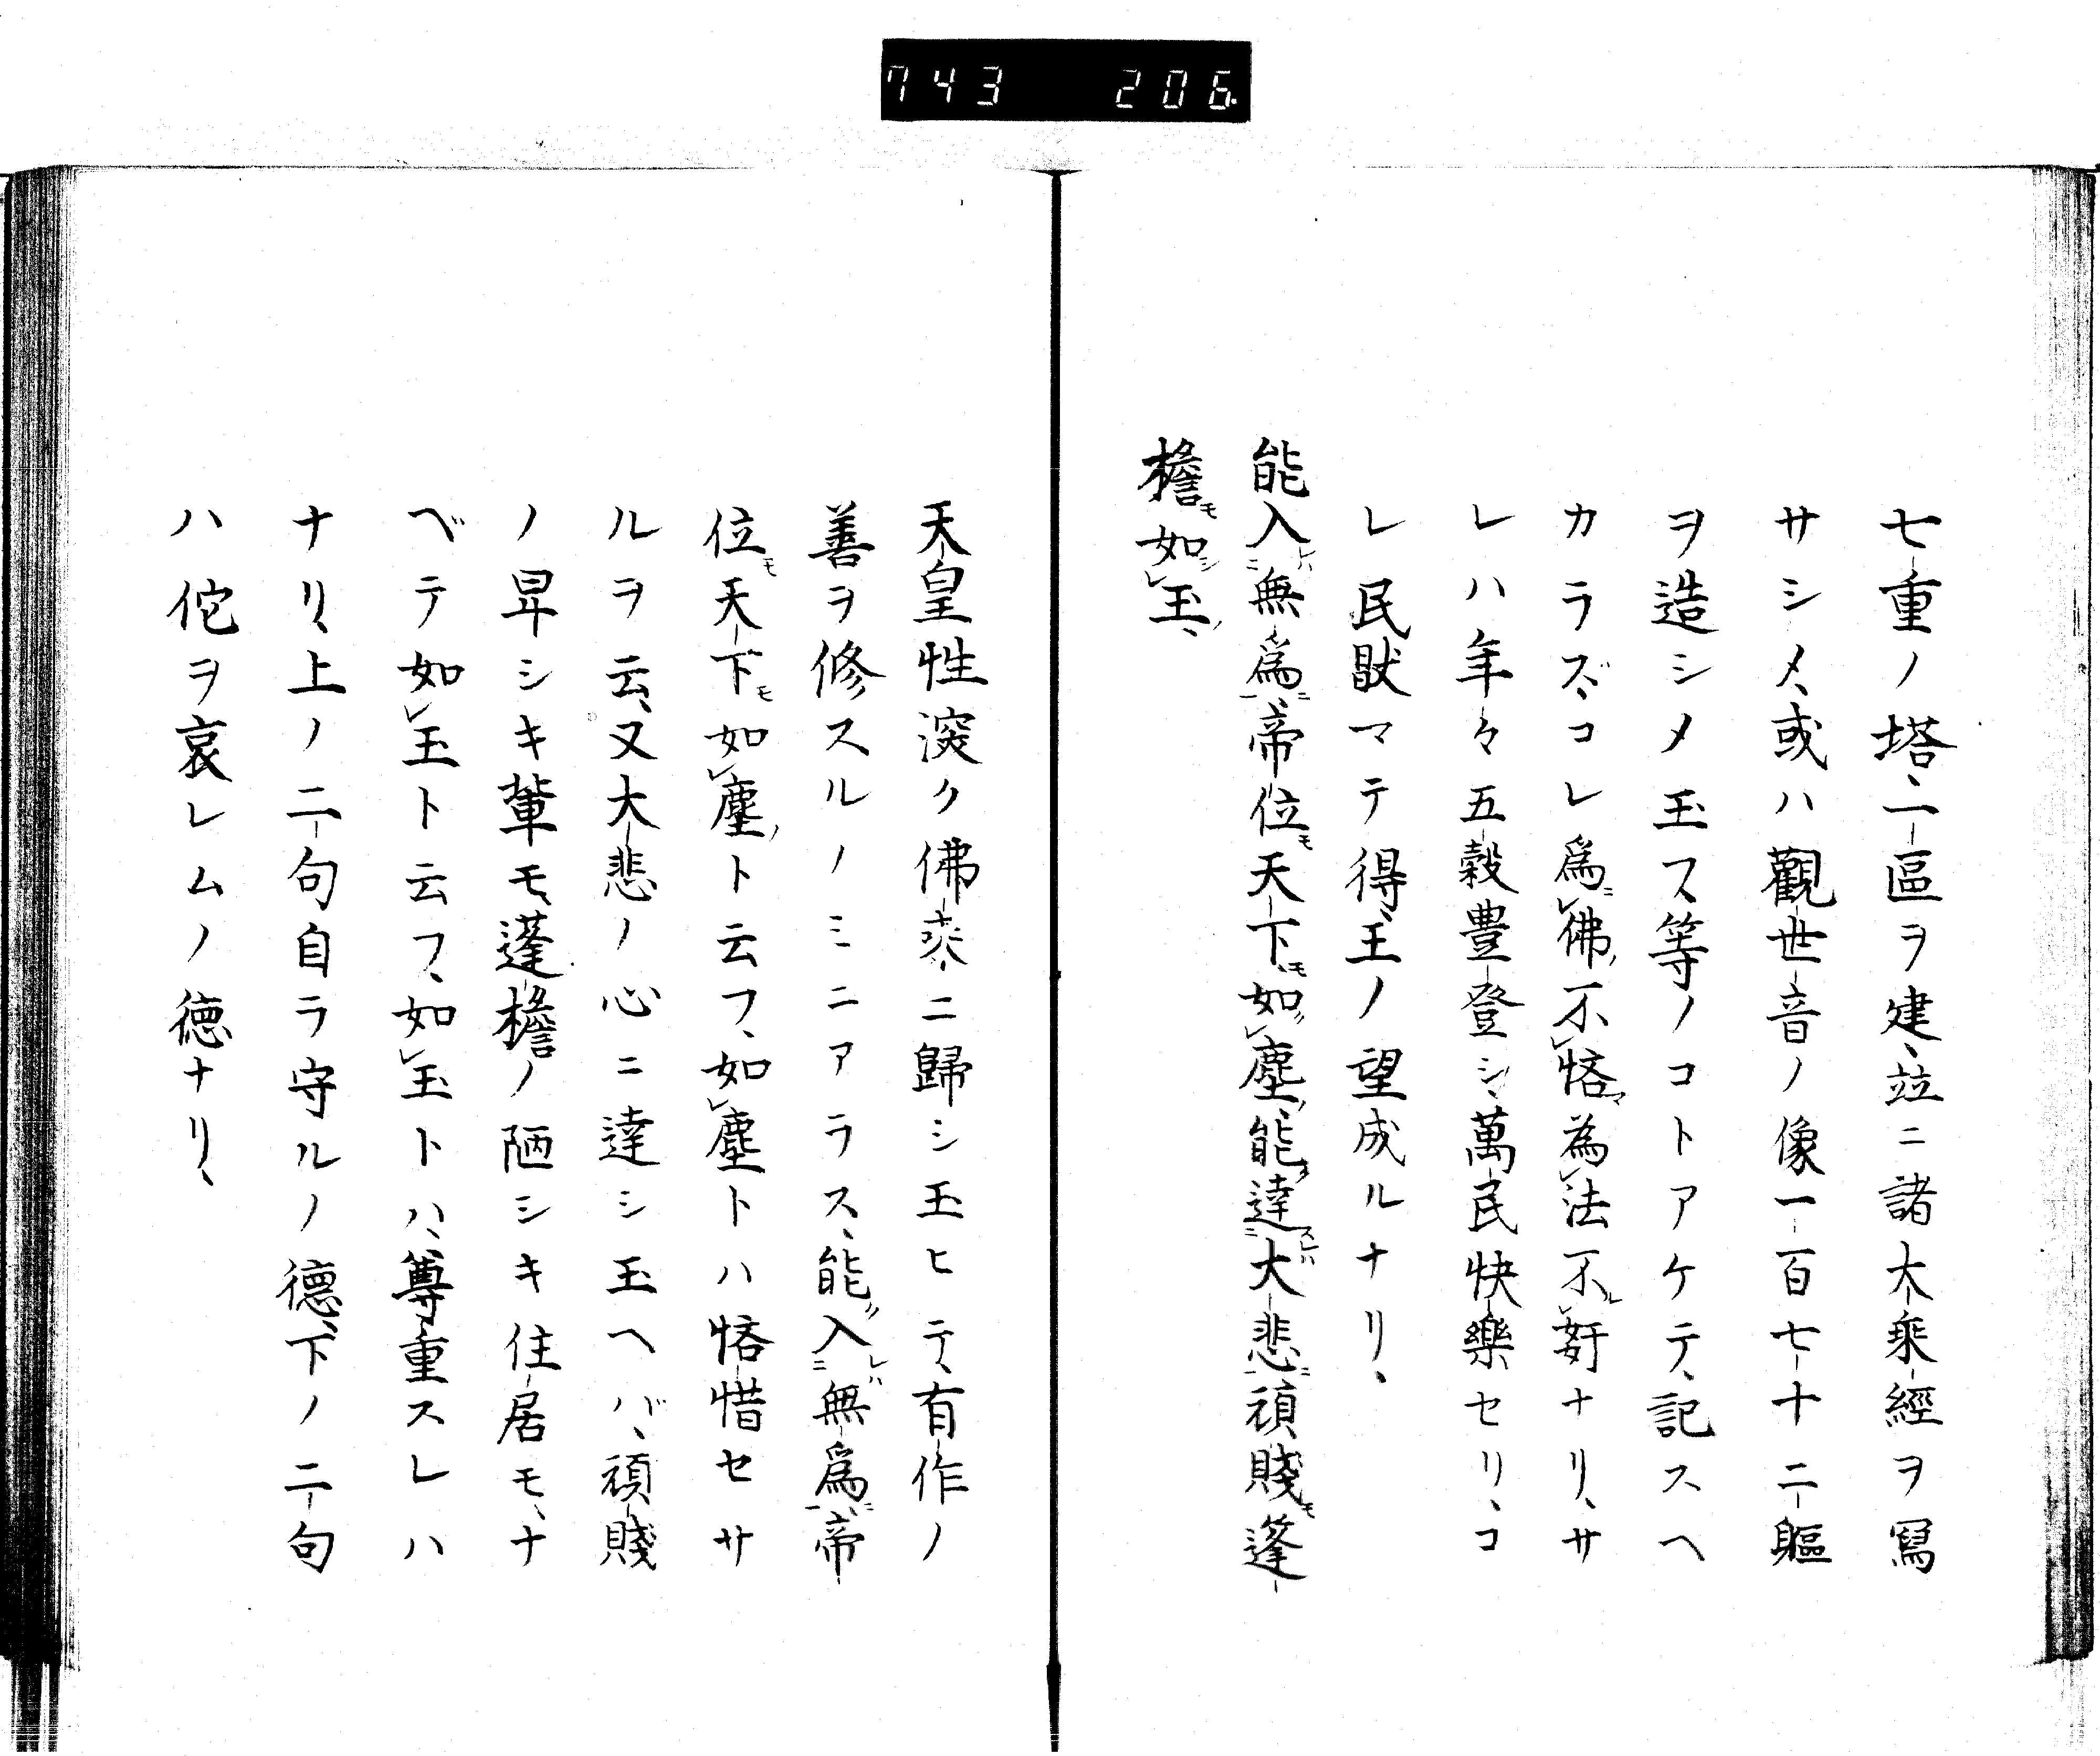 743 206
七重ノ塔、一區ヲ建、竝ニ諸大乘經ヲ寫
サシメ、或ハ觀世音ノ像一百七十二軀
ヲ造シメ玉ス等ノコトアケテ、記スヘ
カラズ、コレ爲佛不悋為法不姧ナリ、サ
レハ年々五穀豊登シ、萬民快樂セリ、コ
レ民猷マテ得、王ノ望成ルナリ、
能入無爲、帝位天下、如塵、能達大悲頑賤蓬
檐如玉、
天皇性深ク佛乘ニ歸シ玉ヒテ、有作ノ
善ヲ修スルノミニアラス、能入無爲帝
位天下如塵ト云フ、如塵トハ悋惜セサ
ルヲ云、又大悲ノ心ニ達シ玉ヘバ、頑賤
ノ卑シキ輩モ、蓬檐ノ陋シキ住居モ、ナ
ベテ如玉ト云フ、如玉トハ、尊重スレハ
ナリ、上ノ二句自ラ守ルノ德、下ノ二句
ハ佗ヲ哀レムノ德ナリ、